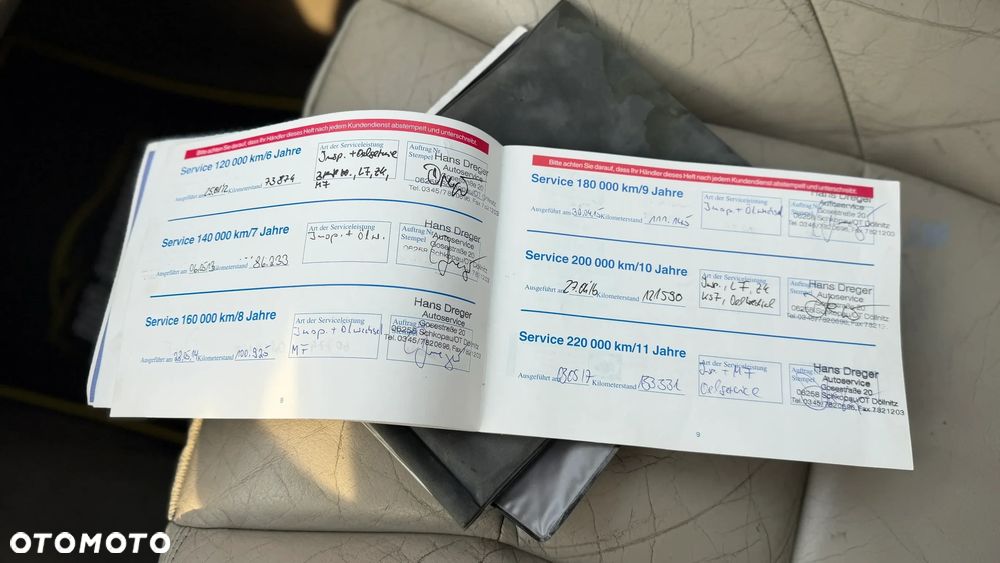 Bitte achten Sie darauf, dass Ihr Händler dieses Heft nach jedem Kundendienst abstempelt und unterschreibt.
Service 120 000 km/6 Jahre
Art der Serviceleistung
Insp. + Oelservice
LT, ZK,
MF
Auftrag Nr.
Stempel
Hans Dreger
Autoservice
Gosestraße 20
Tel. 0345/7820696, Fax
Ausgeführt am Kilometerstand 73 874
Service 140 000 km/7 Jahre
Art der Serviceleistung
Insp. + Ölw.
Auftrag Nr.
Stempel
Hans Dreger
Autoservice
Gosestraße 20
06258 Schkopau/OT Döllnitz
Tel. 0345/7820696, Fax
Ausgeführt am 06.05.13 Kilometerstand 86.233
Service 160 000 km/8 Jahre
Art der Serviceleistung
Insp. + Ölwechsel
MF
Auftrag
Stempel
Hans Dreger
Autoservice
Gosestraße 20
06258 Schkopau/OT Döllnitz
Tel. 0345/7820696, Fax
Ausgeführt am 08.05.14 Kilometerstand 100.925
8
Bitte achten Sie darauf, dass Ihr Händler dieses Heft nach jedem Kundendienst abstempelt und unterschreibt.
Service 180 000 km/9 Jahre
Art der Serviceleistung
Insp + Ölwechsel
Auftrag
Stempel
Hans Dreger
Autoservice
Gosestraße 20
06258 Schkopau/OT Döllnitz
Tel. 0345/7820696, Fax 7821203
Ausgeführt am 30.04.15 Kilometerstand 111.145
Service 200 000 km/10 Jahre
Art der Serviceleistung
Insp., LT, ZK
KST, Oelwechsel
Auftrag
Stempel
Hans Dreger
Autoservice
Gosestraße 20
06258 Schkopau/OT Döllnitz
Tel. 0345/7820696, Fax
Ausgeführt am 27.04.16 Kilometerstand 121590
Service 220 000 km/11 Jahre
Art der Serviceleistung
Ins + MF
Oelservice
Auftrag
Stempel
Hans Dreger
Autoservice
Gosestraße 20
06258 Schkopau/OT Döllnitz
Tel. 0345/7820696, Fax 7821203
Ausgeführt am 03.05.17 Kilometerstand 133.331
9
OTOMOTO